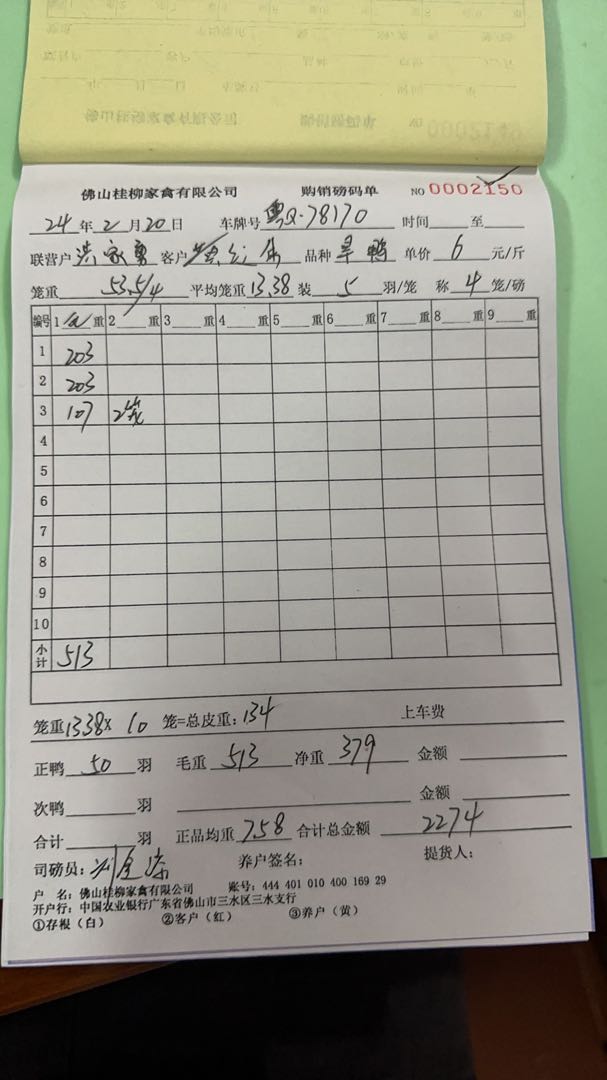 0002149
佛山桂柳家禽有限公司 购销磅码单 NO 0002150
24年2月20日 车牌号 粤Q-78170 时间 至
联营户 洪家勇 客户 品种 旱鸭 单价 6 元/斤
笼重 53.5/4 平均笼重 13.38 装 5 羽/笼 称 4 笼/磅
编号 1 重 2 重 3 重 4 重 5 重 6 重 7 重 8 重 9 重
1 203
2 203
3 107 2笼
4
5
6
7
8
9
10
小计 513
笼重 13.38 × 10 笼=总皮重: 134 上车费
正鸭 50 羽 毛重 513 净重 379 金额
次鸭 羽 金额
合计 羽 正品均重 7.58 合计总金额 2274
司磅员: 养户签名: 提货人:
户 名: 佛山桂柳家禽有限公司 账号: 444 401 010 400 169 29
开户行: 中国农业银行广东省佛山市三水区三水支行
①存根（白） ②客户（红） ③养户（黄）